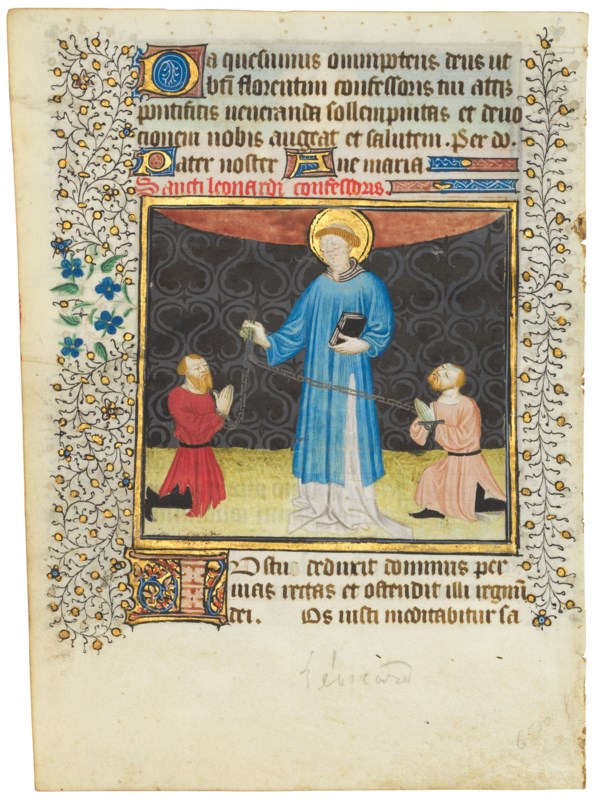 Da quesumus omnipotens deus ut
bti florentini confessoris tui atqz
pontificis ueneranda sollempnitas et deuo
tionem nobis augeat et salutem. Per do.
Pater noster Aue maria
Sancti leonardi confessoris
Iustu deduxit dominus per
uias rectas et ostendit illi regnu
dei. Os iusti meditabitur sa
Léonard